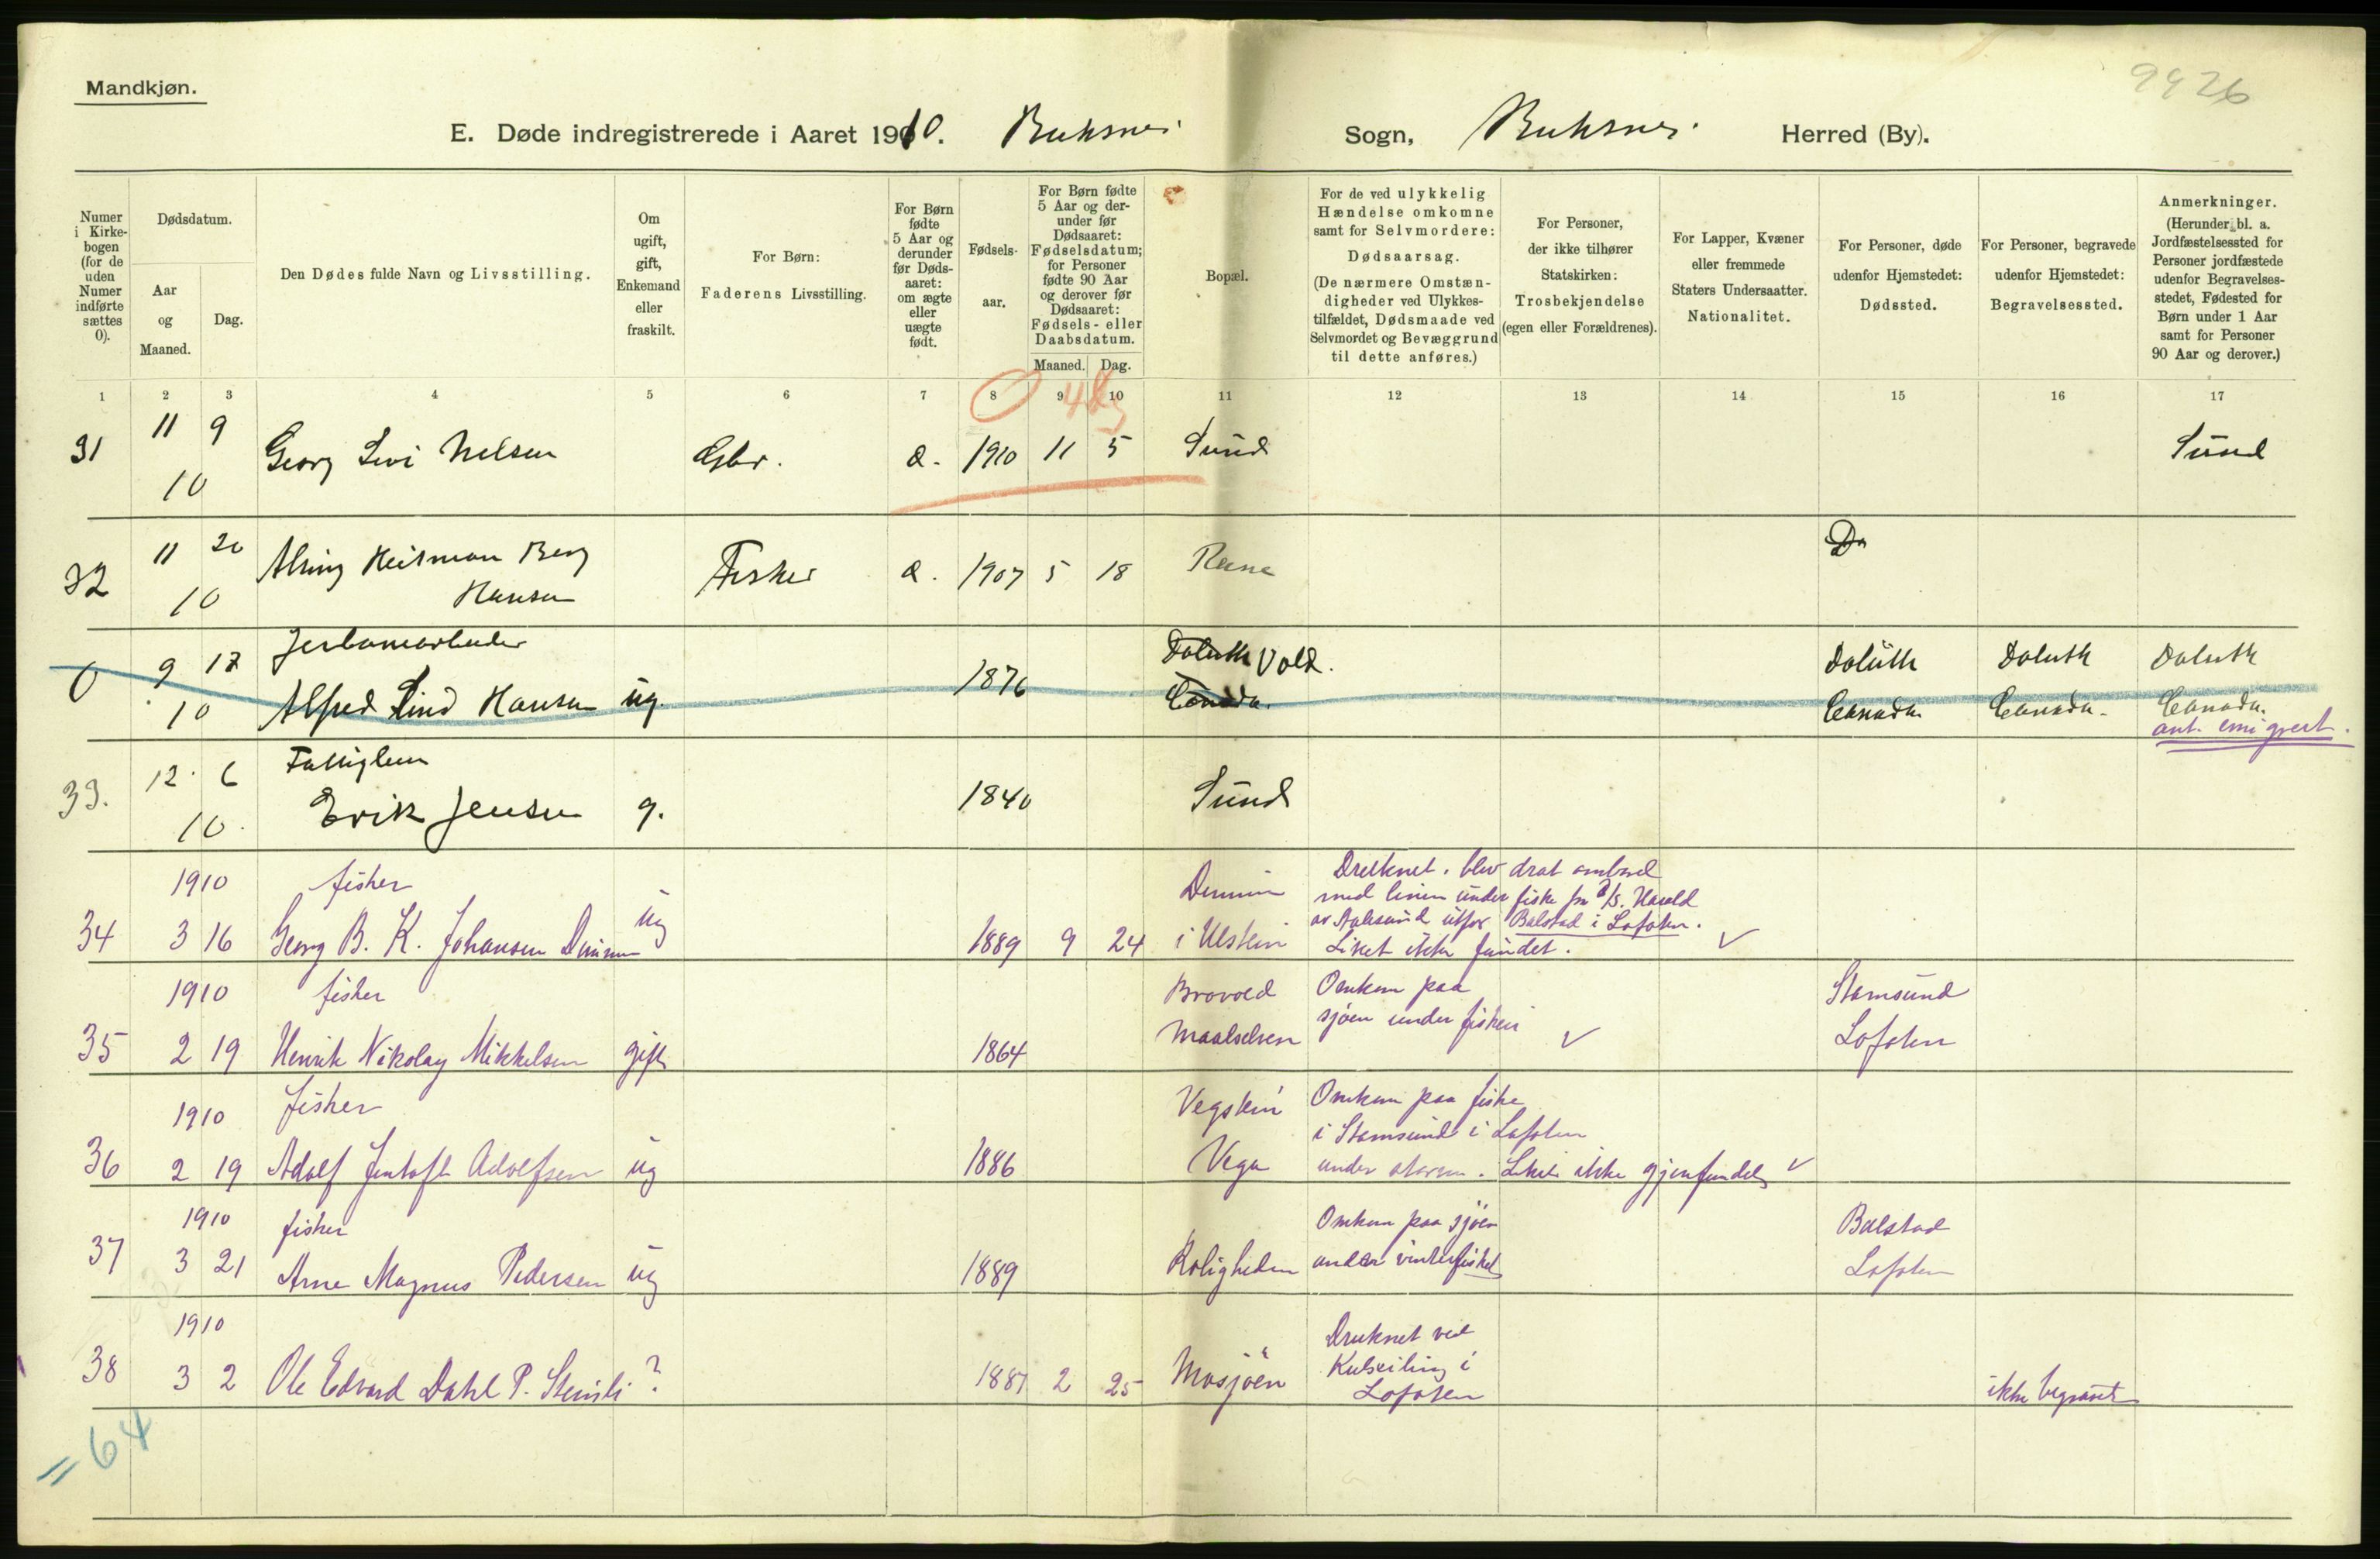 Mandkjøn.
9926
E. Døde indregistrerede i Aaret 1910. Buksnes Sogn, Buksnes Herred (By).
Numer i Kirkebogen (for de uden Numer indførte sættes 0).
Dødsdatum.
Aar og Maaned.
Dag.
Den Dødes fulde Navn og Livsstilling.
Om ugift, gift, Enkemand eller fraskilt.
For Børn: Faderens Livsstilling.
For Børn fødte 5 Aar og derunder før Dødsaaret: om ægte eller uægte født.
Fødselsaar.
For Børn fødte 5 Aar og derunder før Dødsaaret: Fødselsdatum; for Personer fødte 90 Aar og derover før Dødsaaret: Fødsels- eller Daabsdatum.
Maaned. Dag.
Bopæl.
For de ved ulykkelig Hændelse omkomne samt for Selvmordere: Dødsaarsag.
(De nærmere Omstændigheder ved Ulykkestilfældet, Dødsmaade ved Selvmordet og Bevæggrund til dette anføres.)
For Personer, der ikke tilhører Statskirken: Trosbekjendelse (egen eller Forældrenes).
For Lapper, Kvæner eller fremmede Staters Undersaatter. Nationalitet.
For Personer, døde udenfor Hjemstedet: Dødssted.
For Personer, begravede udenfor Hjemstedet: Begravelsessted.
Anmerkninger.
(Herunder bl. a. Jordfæstelsessted for Personer jordfæstede udenfor Begravelsesstedet, Fødested for Børn under 1 Aar samt for Personer 90 Aar og derover.)
1 2 3 4 5 6 7 8 9 10 11 12 13 14 15 16 17
0 4 Dg
31 11 9 10 Georg Levi Nelsen Gbr. æ. 1910 11 5 Sund Sund
32 11 20 10 Heitman Berg Hansen Fisker æ. 1907 5 18 Reine
0 9 17 10 Jerbanearbeider
Alfred Lind Hansen ug. 1876 Doluth Canada. Vold. Doluth Canada Doluth Canada. Doluth Canada.
ant. emigrert.
33. 12 6 10. Fattiglem
Erik Jensen g. 1840 Sund
34 1910 3 16 fisker
Georg B. K. Johansen Dimmen ug 1889 9 24 Dimmen
i Ulstein
Druknet. blev drat ombord
med linen under fiske fra D/S. Harald
av Aalesund utfor Balstad i Lofoten.
Liket ikke fundet.
35 1910 2 19 fisker
Henrik Nikolay Mikkelsen gift 1864 Brovold
Maalselven
Omkom paa
sjøen under fiskeri
Stamsund
Lofoten
36 1910 2 19 fisker
Adolf Jentoft Adolfsen ug 1886 Vegstein
Vega
Omkom paa fiske
i Stamsund i Lofoten
under storm. Liket ikke gjenfundet
37 1910 3 21 fisker
Arne Magnus Pedersen ug 1889 Roligheden
Omkom paa sjøen
under vinterfisket
Balstad
Lofoten
38 1910 3 2 Ole Edvard Dahl P. Steinli ? 1887 2 25 Mosjøen
Druknet ved
Kulseiling i
Lofoten
ikke begravet
= 64